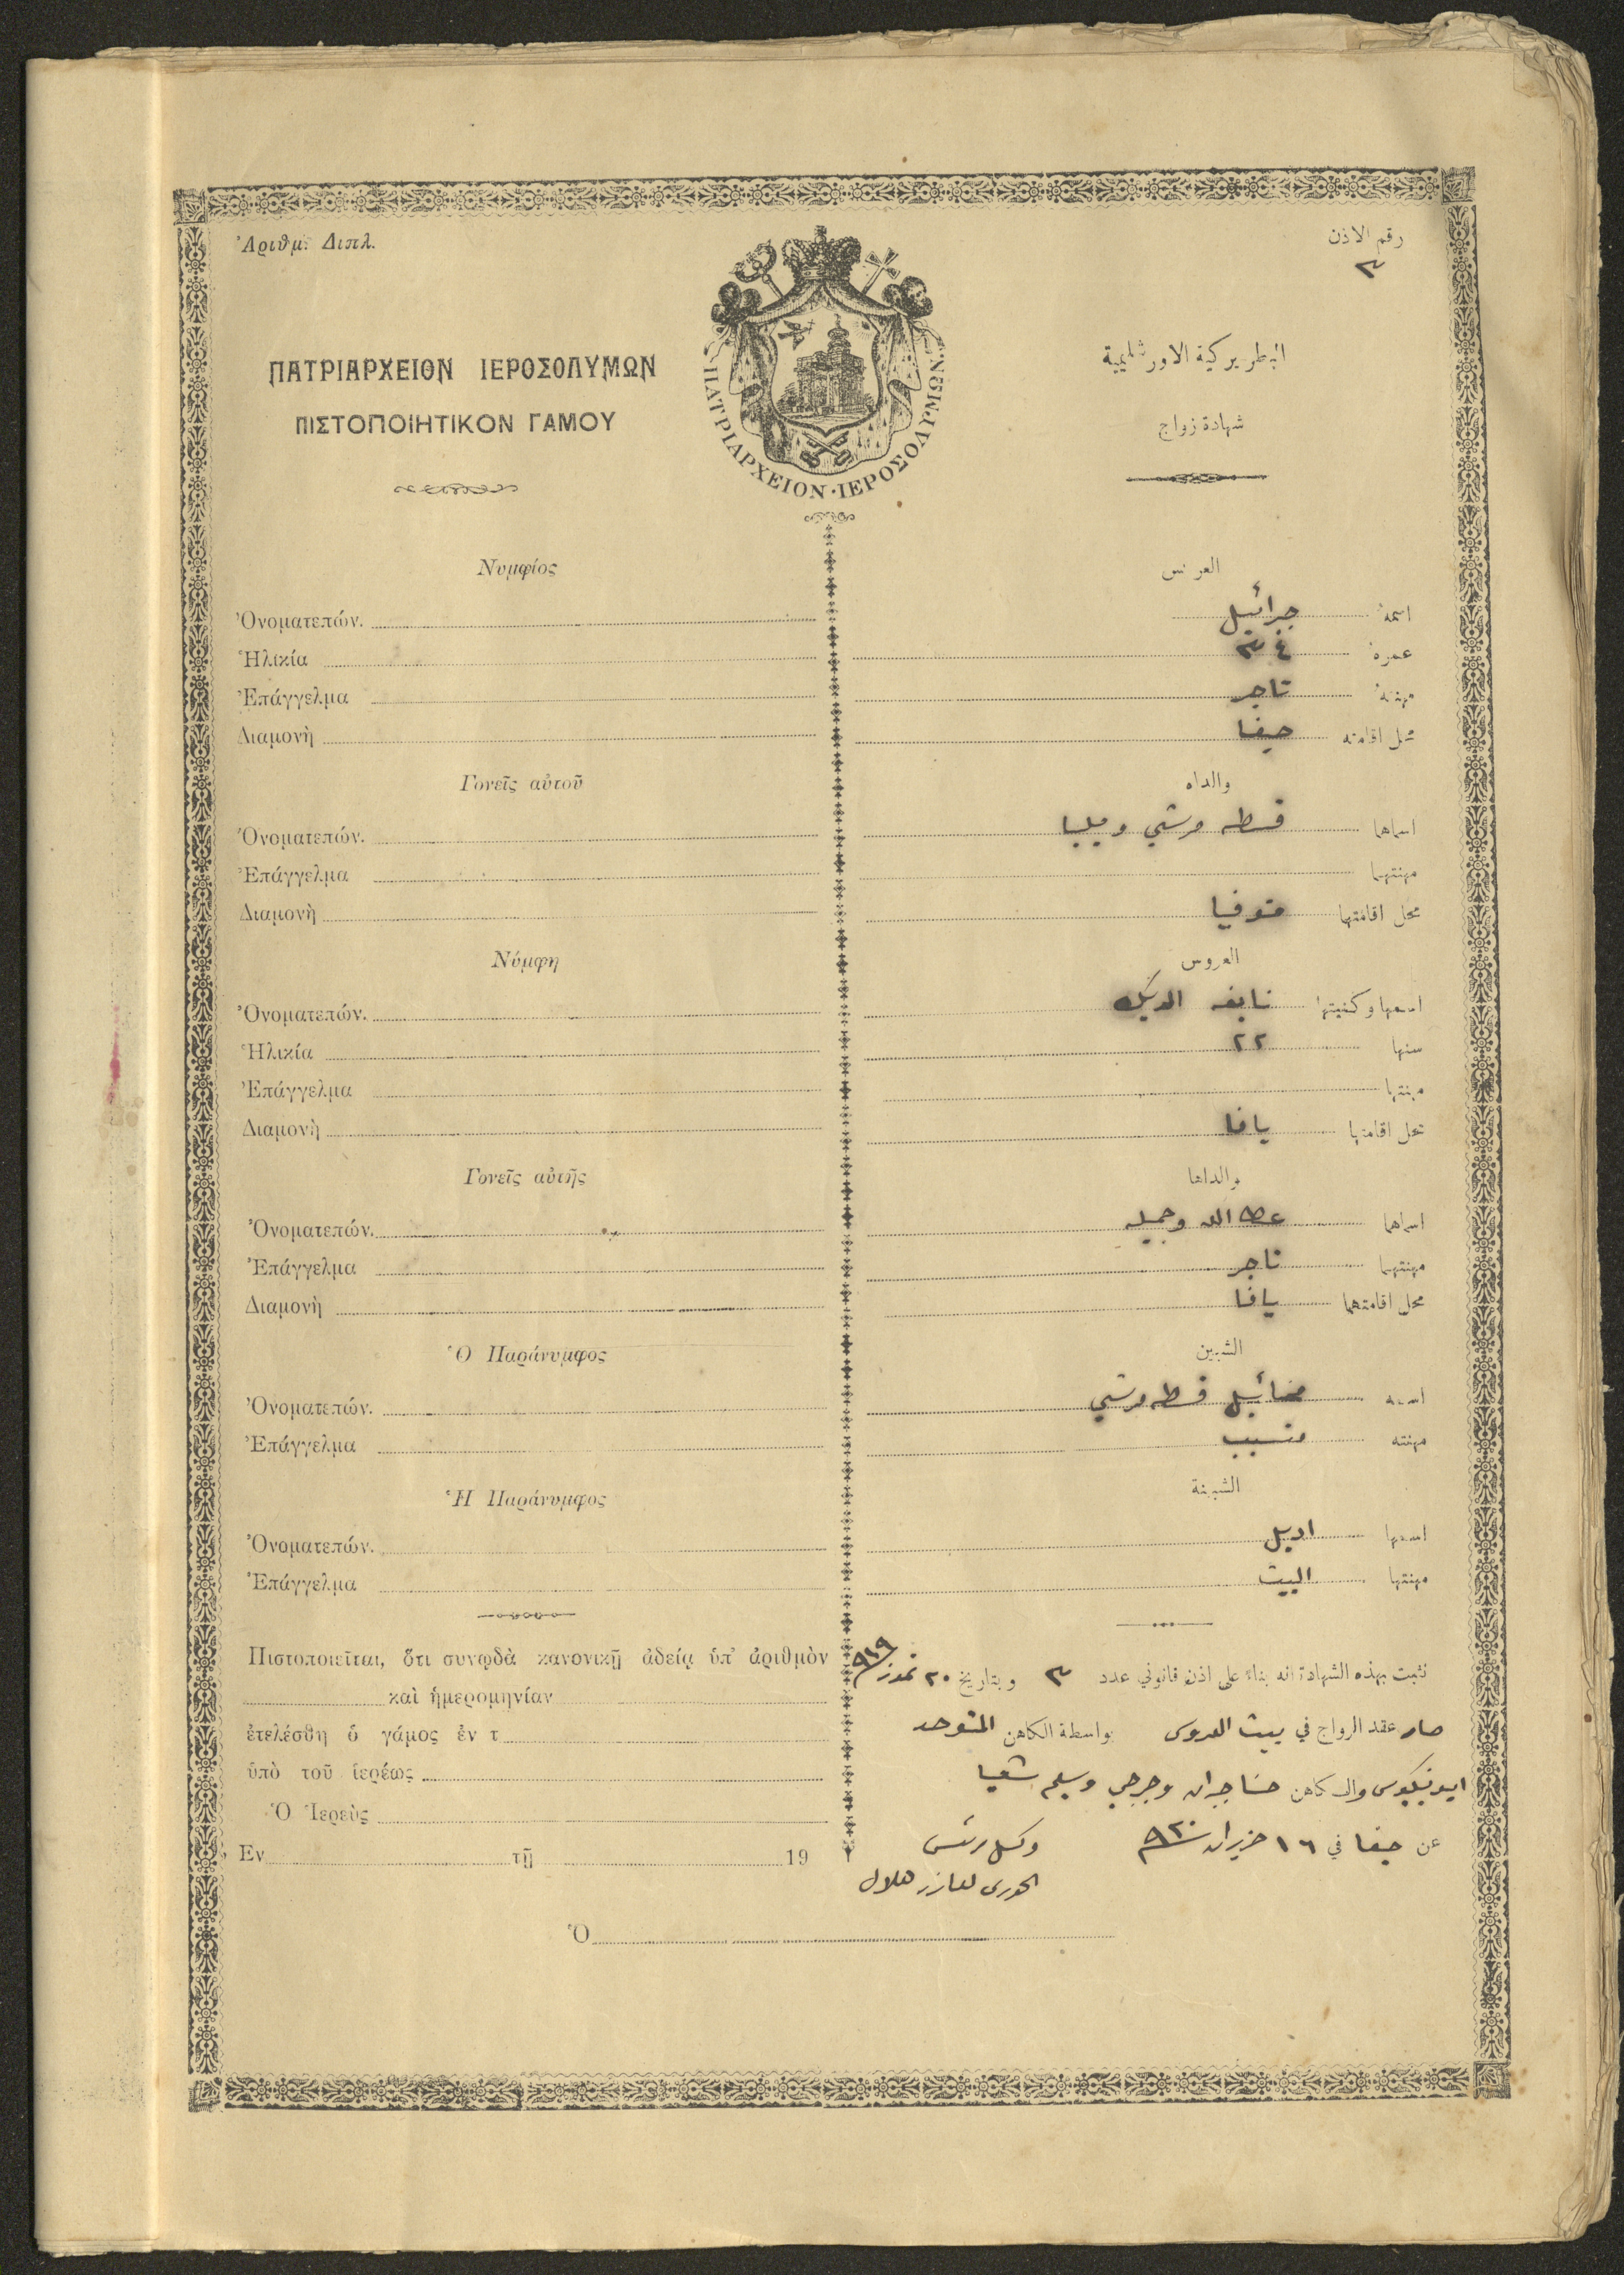 Ἀριθμ. Διπλ.
رقم الاذن
٣
ΠΑΤΡΙΑΡΧΕΙΟΝ ΙΕΡΟΣΟΛΥΜΩΝ
ΠΙΣΤΟΠΟΙΗΤΙΚΟΝ ΓΑΜΟΥ
ΠΑΤΡΙΑΡΧΕΙΟΝ·ΙΕΡΟΣΟΛΥΜΩΝ
البطريركية الاورشليمية
شهادة زواج
Νυμφίος
Ὀνοματεπών.
Ἡλικία
Ἐπάγγελμα
Διαμονὴ
Γονεῖς αὐτοῦ
Ὀνοματεπών.
Ἐπάγγελμα
Διαμονὴ
Νύμφη
Ὀνοματεπών.
Ἡλικία
Ἐπάγγελμα
Διαμονὴ
Γονεῖς αὐτῆς
Ὀνοματεπών.
Ἐπάγγελμα
Διαμονὴ
Ὁ Παράνυμφος
Ὀνοματεπών.
Ἐπάγγελμα
Ἡ Παράνυμφος
Ὀνοματεπών.
Ἐπάγγελμα
Πιστοποιεῖται, ὅτι συνῳδὰ κανονικῇ ἀδείᾳ ὑπ' ἀριθμὸν
καὶ ἡμερομηνίαν
ἐτελέσθη ὁ γάμος ἐν τ
ὑπὸ τοῦ ἱερέως
Ὁ Ἱερεὺς
Ἐν τῇ 19
العريس
اسمهُ جبرائيل
عمرهُ ٣٤
مهنتهُ تاجر
محل اقامته حيفا
والداه
اسماهما قسطه مرشي و
مهنتهما
محل اقامتهما متوفيا
العروس
اسمها وكنيتها نايفه الديك
سنها ٢٢
مهنتها
محل اقامتها يافا
والداها
اسماهما عطاالله وجميله
مهنتهما تاجر
محل اقامتهما يافا
الشبين
اسمه مخائيل قسطه مرشي
مهنته متسبب
الشبينة
اسمها اديل
مهنتها البيت
نثبت بهذه الشهادة انه بناءً على اذن قانوني عدد ٣ وبتاريخ ٢٠ تموز ٩١٩
صار عقد الزواج في بيت العروس بواسطة الكاهن المتوحد
والكاهن وجرجي وسليم شعيا
عن حيفا في ١٦ حزيران ٩٢٠
وكيل رئيس
الخوري لعازر هلال
Ὁ